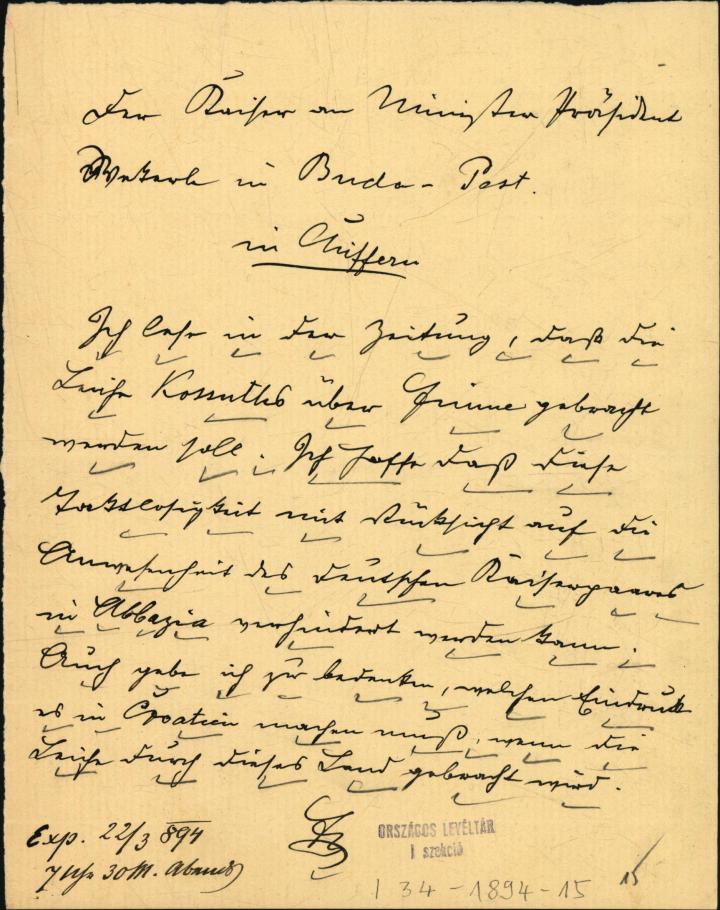 Der Kaiser an Minister Präsident
Wekerle in Buda-Pest.
in Chiffern
Ich lese in der Zeitung, daß die
Leiche Kossuths über Fiume gebracht
werden soll. Ich hoffe daß diese
Taktlosigkeit mit Rücksicht auf die
Anwesenheit des deutschen Kaiserpaares
in Abbazia verhindert werden kann.
Auch gebe ich zu bedenken, welchen Eindruck
es in Croatien machen muß, wenn die
Leiche durch dieses Land gebracht wird.
Exp. 22/3 894
7 Uhr 30 M. Abends
ORSZÁGOS LEVÉLTÁR
I szekció
I 34-1894-15
15